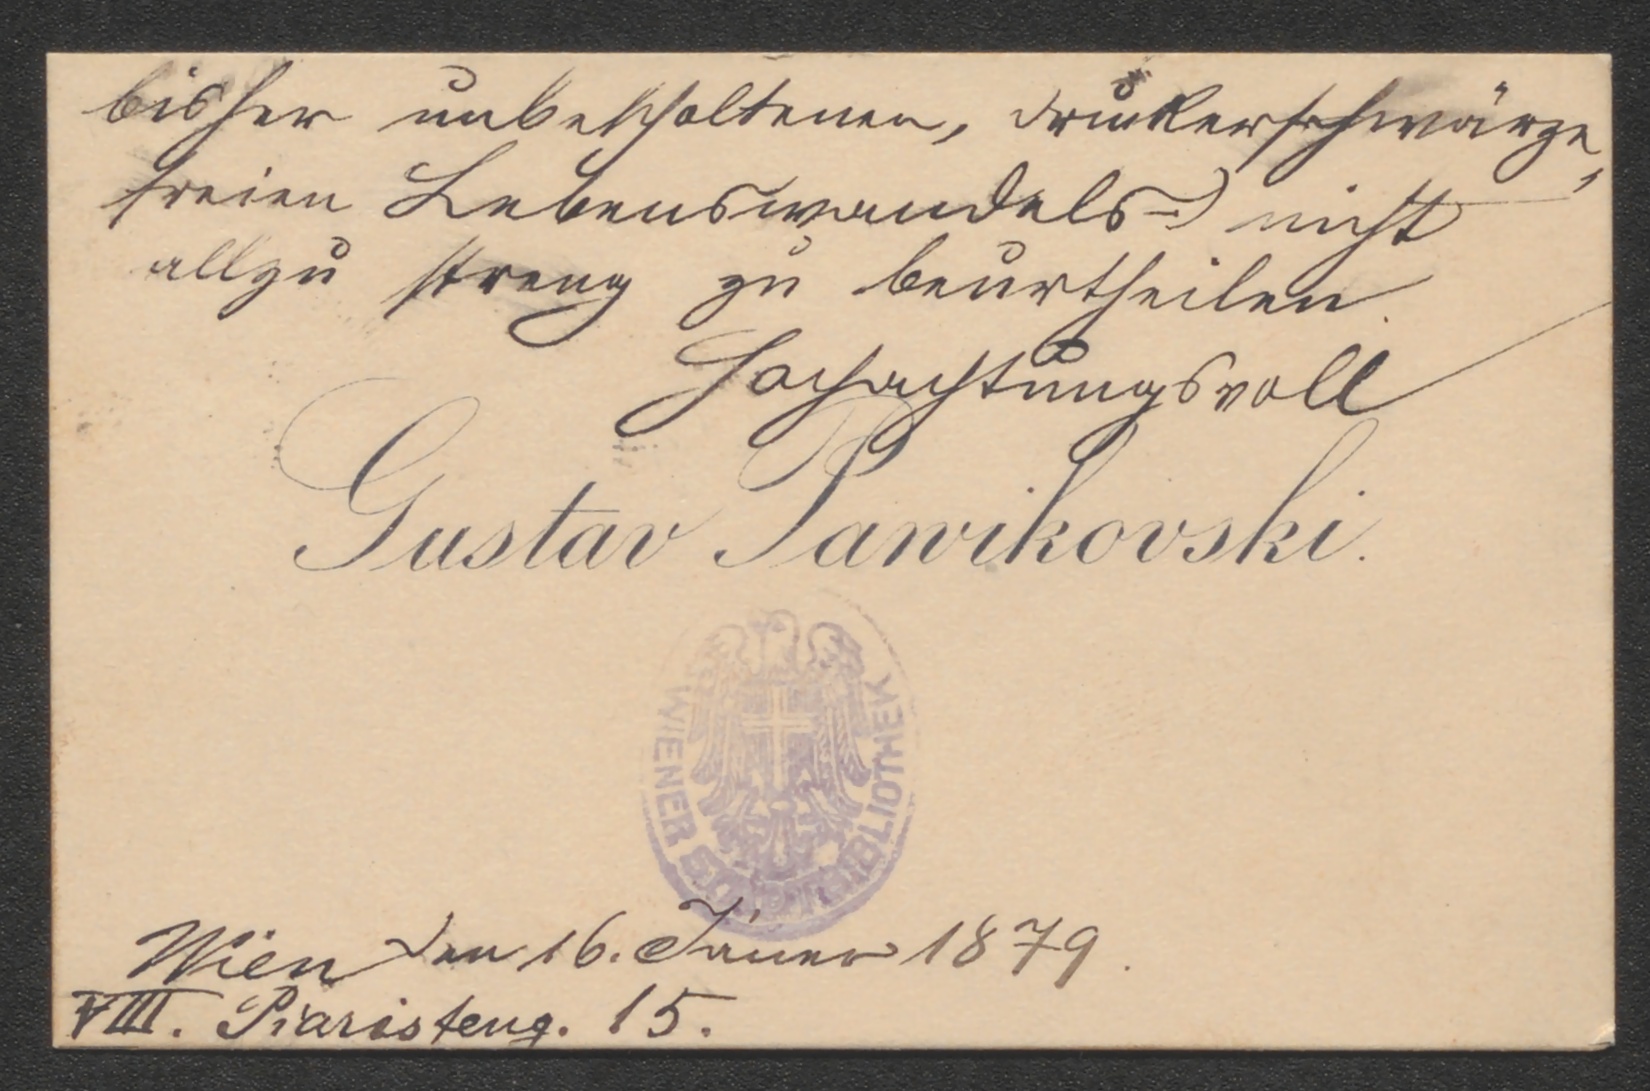 bisher unbescholtenen, druckerschwärze,
freien Lebenswandels –) nicht
allzu streng zu beurtheilen.
Hochachtungsvoll
Gustav Pawikovski.
WIENER STADTBIBLIOTHEK
Wien den 16. Jäner 1879.
VIII. Piaristeng. 15.